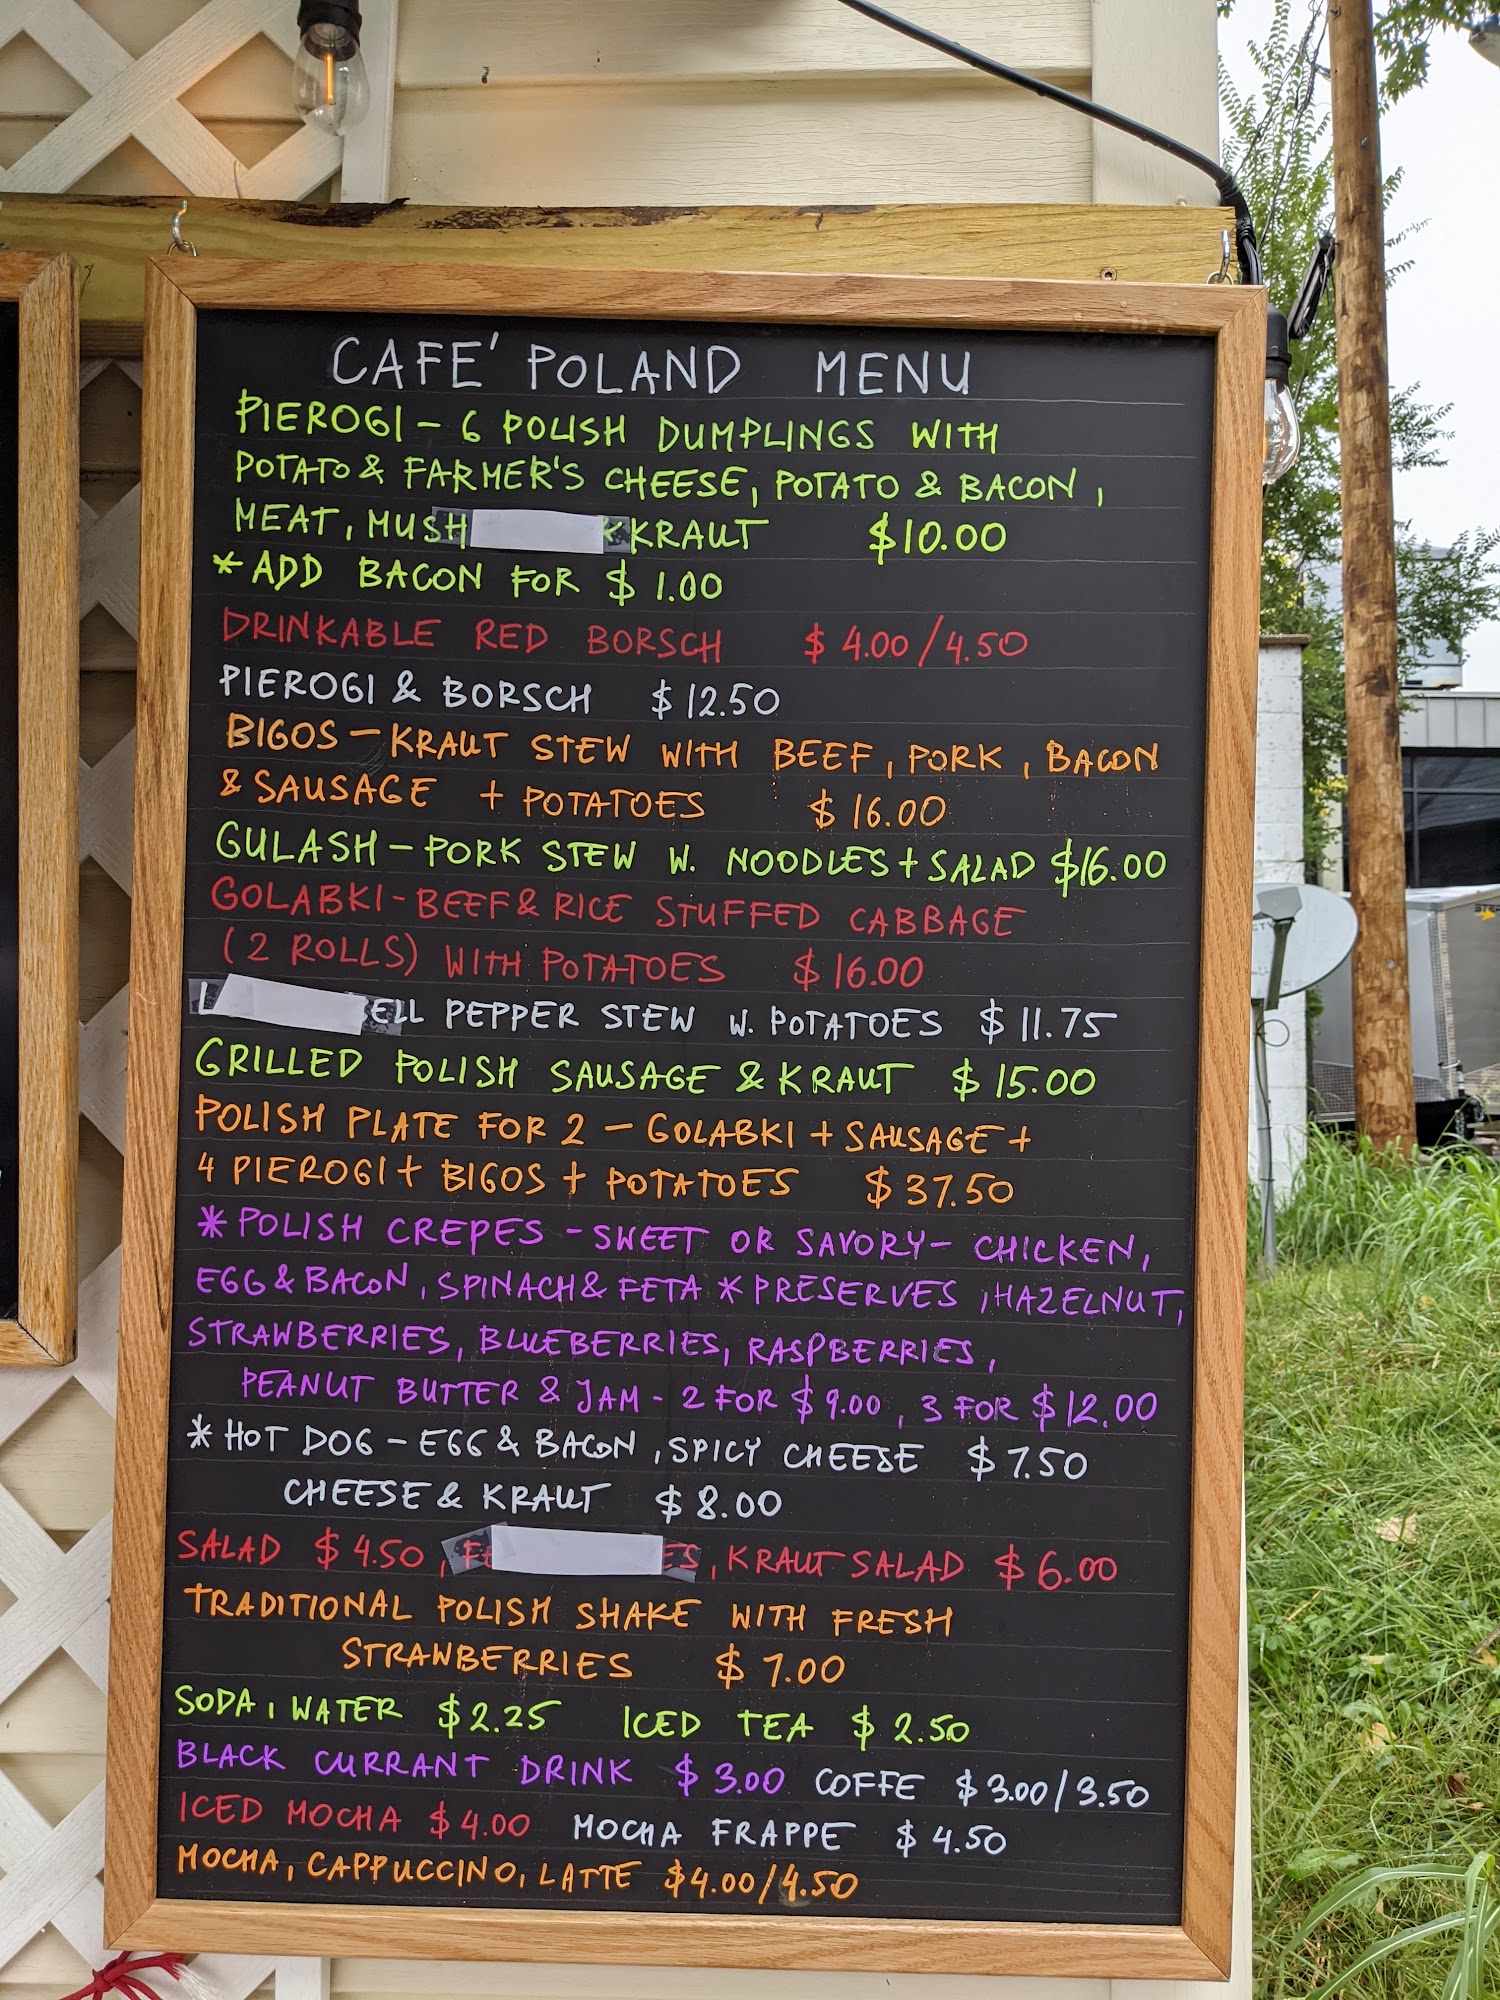 CAFE' POLAND MENU
PIEROGI - 6 POLISH DUMPLINGS WITH
POTATO & FARMER'S CHEESE, POTATO & BACON,
MEAT, KRAUT $10.00
* ADD BACON FOR $ 1.00
DRINKABLE RED BORSCH $ 4.00/4.50
PIEROGI & BORSCH $ 12.50
BIGOS - KRAUT STEW WITH BEEF, PORK, BACON
& SAUSAGE + POTATOES $ 16.00
GULASH - PORK STEW W. NOODLES + SALAD $16.00
GOLABKI - BEEF & RICE STUFFED CABBAGE
(2 ROLLS) WITH POTATOES $ 16.00
PEPPER STEW W. POTATOES $ 11.75
GRILLED POLISH SAUSAGE & KRAUT $ 15.00
POLISH PLATE FOR 2 - GOLABKI + SAUSAGE +
4 PIEROGI + BIGOS + POTATOES $ 37.50
* POLISH CREPES - SWEET OR SAVORY - CHICKEN,
EGG & BACON, SPINACH & FETA * PRESERVES, HAZELNUT,
STRAWBERRIES, BLUEBERRIES, RASPBERRIES,
PEANUT BUTTER & JAM - 2 FOR $ 9.00, 3 FOR $ 12.00
* HOT DOG - EGG & BACON, SPICY CHEESE $ 7.50
CHEESE & KRAUT $ 8.00
SALAD $ 4.50, , KRAUT SALAD $ 6.00
TRADITIONAL POLISH SHAKE WITH FRESH
STRAWBERRIES $ 7.00
SODA, WATER $ 2.25 ICED TEA $ 2.50
BLACK CURRANT DRINK $ 3.00 COFFE $ 3.00/3.50
ICED MOCHA $ 4.00 MOCHA FRAPPE $ 4.50
MOCHA, CAPPUCCINO, LATTE $4.00/4.50